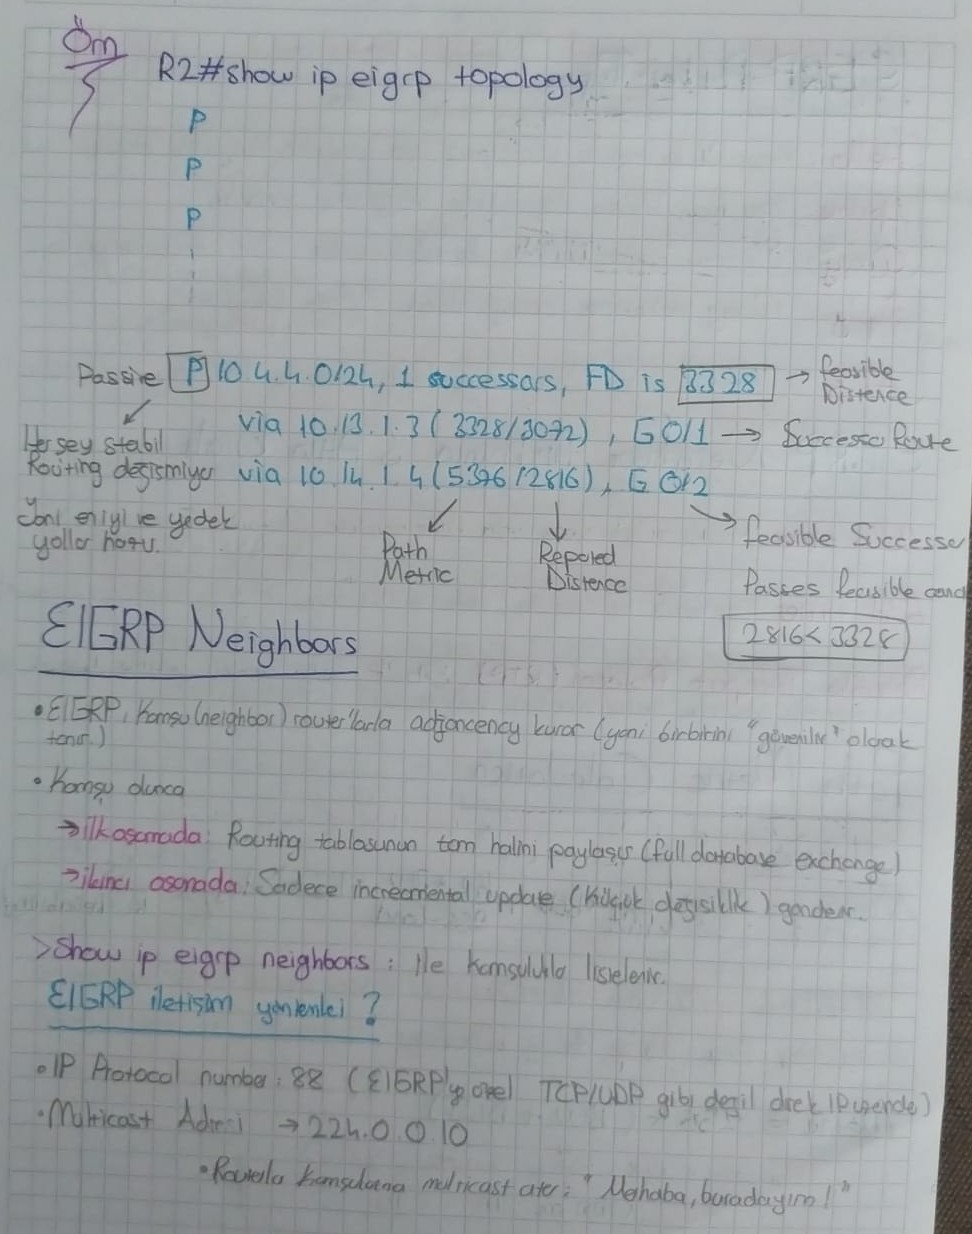 Örn
R2#show ip eigrp topology
P
P
P
Passive P 10.4.4.0/24, 1 successors, FD is 3328 → feasible Distence
via 10.13.1.3 (3328/3072), G0/1 → Successor Route
Herşey stabil
Routing değişmiyor via 10.14.1.4 (5376/2816), G 0/2
yani en iyi ve yedek
yollar hazır.
Path Metric
Repored Distence
feasible Successo
Passes feasible cond
2816 < 3328
EIGRP Neighbors
• EIGRP, Komşu (neighbor) router'larla adjancency kurar (yani birbirini "güvenilir" olarak
tanır.)
• Komşu olunca
→ ilk aşamada: Routing tablosunun tam halini paylaşır (full database exchange)
→ ikinci aşamada: Sadece increamental update (küçük değişiklik) gönderir.
> Show ip eigrp neighbors : ile komşuluklar listelenir.
EIGRP iletişim yöntemleri ?
• IP Protocol number: 88 (EIGRP'ye özel TCP/UDP gibi değil direk IP üzerinde)
• Multicast Adresi → 224.0.0.10
• Routerlar komşularına multicast atar: "Merhaba, buradayım!"